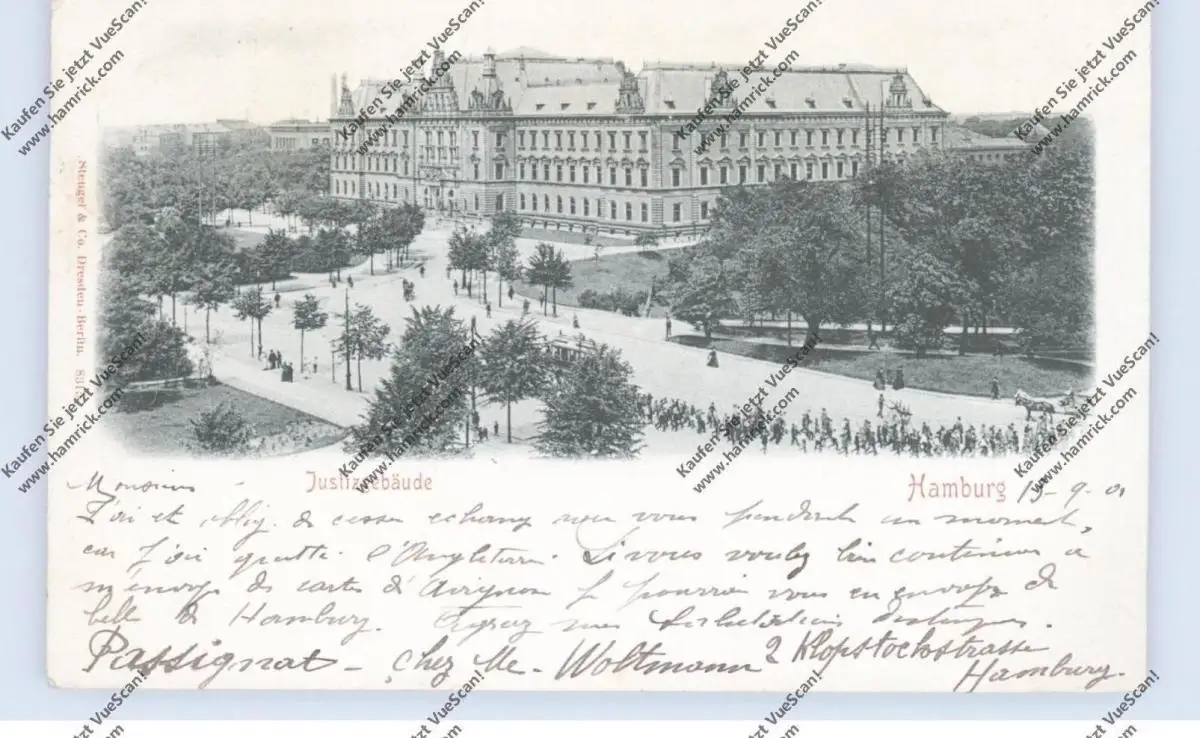 Kaufen Sie jetzt VueScan!
www.hamrick.com
Stengel & Co. Dresden-Berlin. 83
Justizgebäude
Hamburg 15-9-01
Monsieur
J'ai et oblig. de cesser echang avec vous pendant un moment,
car j'ai quitté l'Angleterre. Si vous voulez bien continuer a
m'envoyer de cartes d'Avignon je pourrai vous en envoyer de
belle de Hamburg. Agréez mes Salutations distinguées.
Passignat - chez Me. Woltmann 2 Klopstockstrasse
Hamburg.